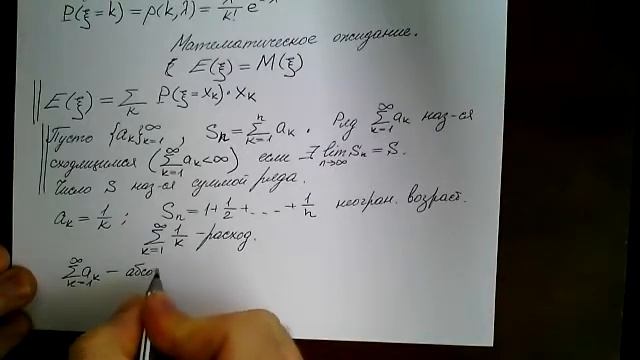 P(ξ=k) = p(k,λ) = λ^k/k! e^-λ
Математическое ожидание.
E(ξ) = M(ξ)
E(ξ) = ∑_k P(ξ=x_k)·x_k
Пусть {a_k}_{k=1}^∞, S_n = ∑_{k=1}^n a_k. Ряд ∑_{k=1}^∞ a_k наз-ся
сходящимся (∑_{k=1}^∞ a_k < ∞) если ∃ lim_{n→∞} S_n = S.
Число S наз-ся суммой ряда.
a_k = 1/k; S_n = 1 + 1/2 + ... + 1/n неогран. возраст.
∑_{k=1}^∞ 1/k - расход.
∑_{k=1}^∞ a_k - абсо